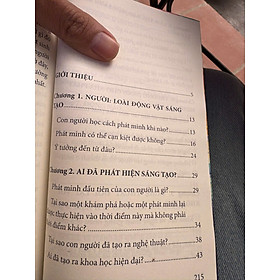 GIỚI THIỆU 5
Chương 1. NGƯỜI: LOÀI ĐỘNG VẬT SÁNG
TẠO 15
Con người học cách phát minh khi nào? 15
Phát minh có thể cạn kiệt được không? 21
Ý tưởng đến từ đâu? 24
Chương 2. AI ĐÃ PHÁT HIỆN SÁNG TẠO? 29
Phát minh đầu tiên của con người là gì? 29
Tại sao một khám phá hoặc một phát minh lại
được thực hiện vào thời điểm này mà không phải
thời điểm khác? 34
Tại sao con người đã tạo ra nghệ thuật? 38
Ai đã tạo ra khoa học hiện đại? 43
215